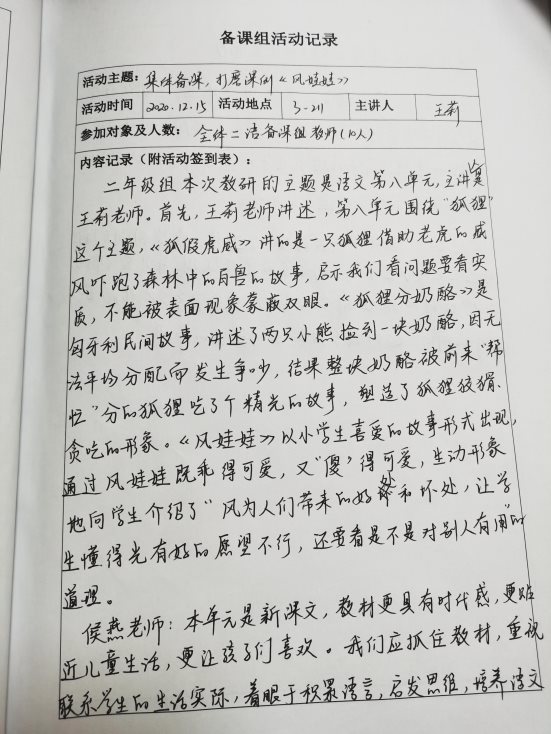 备课组活动记录
活动主题: 集体备课,打磨课例《风娃娃》
活动时间 2020.12.15 活动地点 3-211 主讲人 王莉
参加对象及人数: 全体二语备课组教师(10人)
内容记录(附活动签到表):
二年级组本次教研的主题是语文第八单元,主讲人是
王莉老师。首先,王莉老师讲述,第八单元围绕“狐狸”
这个主题,《狐假虎威》讲的是一只狐狸借助老虎的威
风吓跑了森林中的百兽的故事,启示我们看问题要看实
质,不能被表面现象蒙蔽双眼。《狐狸分奶酪》是
匈牙利民间故事,讲述了两只小熊捡到一块奶酪,因无
法平均分配而发生争吵,结果整块奶酪被前来“帮
忙”分的狐狸吃了个精光的故事,塑造了狐狸狡猾、
贪吃的形象。《风娃娃》以小学生喜爱的故事形式出现,
通过风娃娃既乖得可爱,又“傻”得可爱,生动形象
地向学生介绍了“风为人们带来的好处和坏处,让学
生懂得光有好的愿望不行,还要看是不是对别人有用”的
道理。
侯燕老师:本单元是新课文,教材更具有时代感,更贴
近儿童生活,更让孩子们喜欢。我们应抓住教材,重视
联系学生的生活实际,着眼于积累语言,启发思维,培养语文